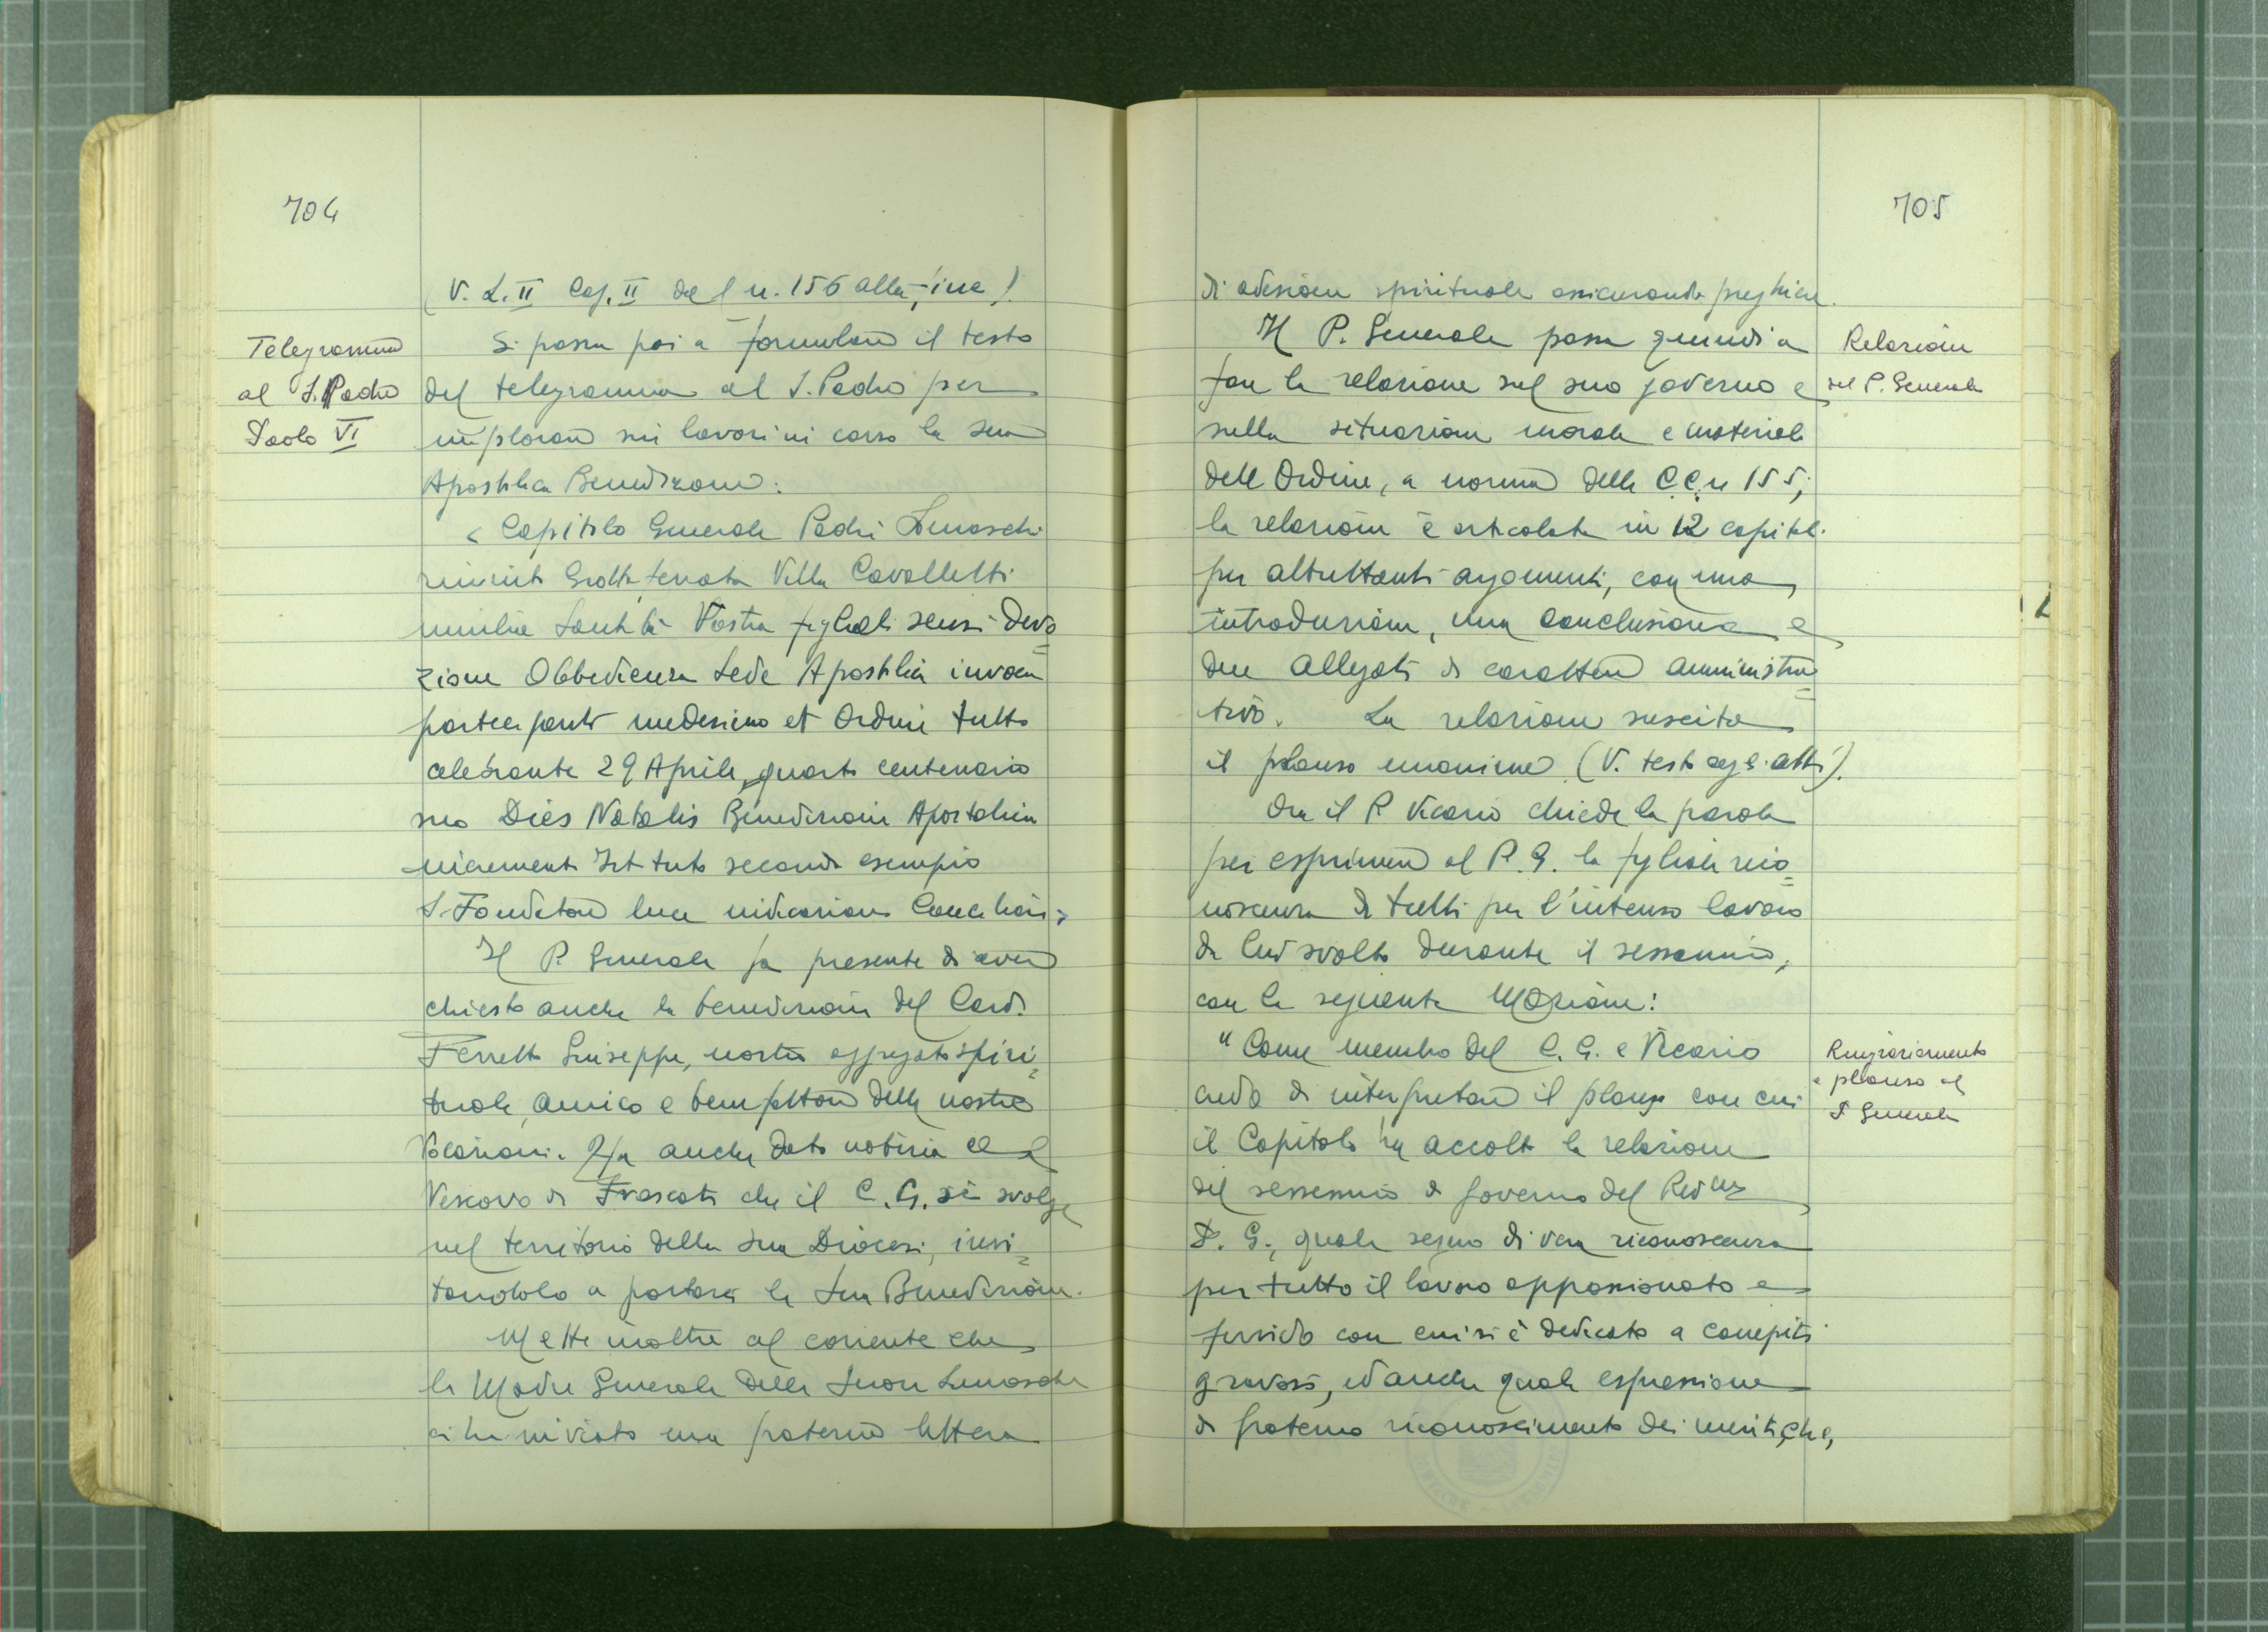 704
(V. L. II Cap. II dal n. 156 alla fine).
Telegramma
al S. Padre
Paolo VI
Si passa poi a formulare il testo
del telegramma al S. Padre per
implorare sui lavori in corso la sua
Apostolica Benedizione:
« Capitolo Generale Padri Somaschi
riunito Grottaferrata Villa Cavalletti
umilia Santità Vostra figliali sensi devo=
zione Obbedienza Sede Apostolica invoca
partecipanti medesimo et Ordine tutto
celebrante 29 Aprile quarto centenario
suo Dies Natalis Benedizione Apostolica
incremento Istituto secondo esempio
S. Fondatore luce indicazioni Conciliari »
Il P. Generale fa presente di avere
chiesto anche la benedizione del Card.
Ferretto Giuseppe, nostro aggregato spiri=
tuale, amico e benefattore delle nostre
Vocazioni. Ha anche dato notizia al
Vescovo di Frascati che il C. G. si svolge
nel territorio della sua Diocesi, invi=
tandolo a portarci la sua Benedizione.
Mette inoltre al corrente che
la Madre Generale delle Suore Somasche
ci ha inviato una fraterna lettera
705
di adesione spirituale assicurando preghiere.
Il P. Generale passa quindi a
fare la relazione sul suo governo e
sulla situazione morale e materiale
dell'Ordine, a norma delle CC. n 155;
la relazione è articolata in 12 capitoli
per altrettanti argomenti, con una
introduzione, una conclusione e
due allegati di carattere amministra=
tivo. La relazione suscita
il plauso unanime (V. testo agli atti).
Relazione
del P. Generale
Ora il P. Vicario chiede la parola
per esprimere al P. G. la figliale rico=
noscenza di tutti per l'intenso lavoro
da lui svolto durante il sessennio,
con la seguente Mozione:
"Come membro del C. G. e Vicario
credo di interpretare il plauso con cui
il Capitolo ha accolto la relazione
del sessennio di governo del Rev.mo
P. G., quale segno di vera riconoscenza
per tutto il lavoro appassionato e
fervido con cui si è dedicato a compiti
gravosi, ed anche quale espressione
di fraterno riconoscimento dei meriti, che,
Ringraziamento
e plauso al
P. Generale